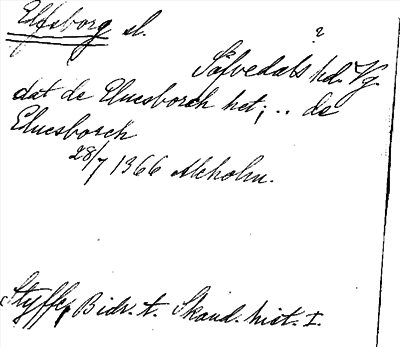 Elfsborg sl. ?
Säfvedals hd. Vg.
dat de Eluesborch het; .. de
Eluesborch
28/7 1366 Aleholm.
Styffe, Bidr. t. Skand. hist. I.